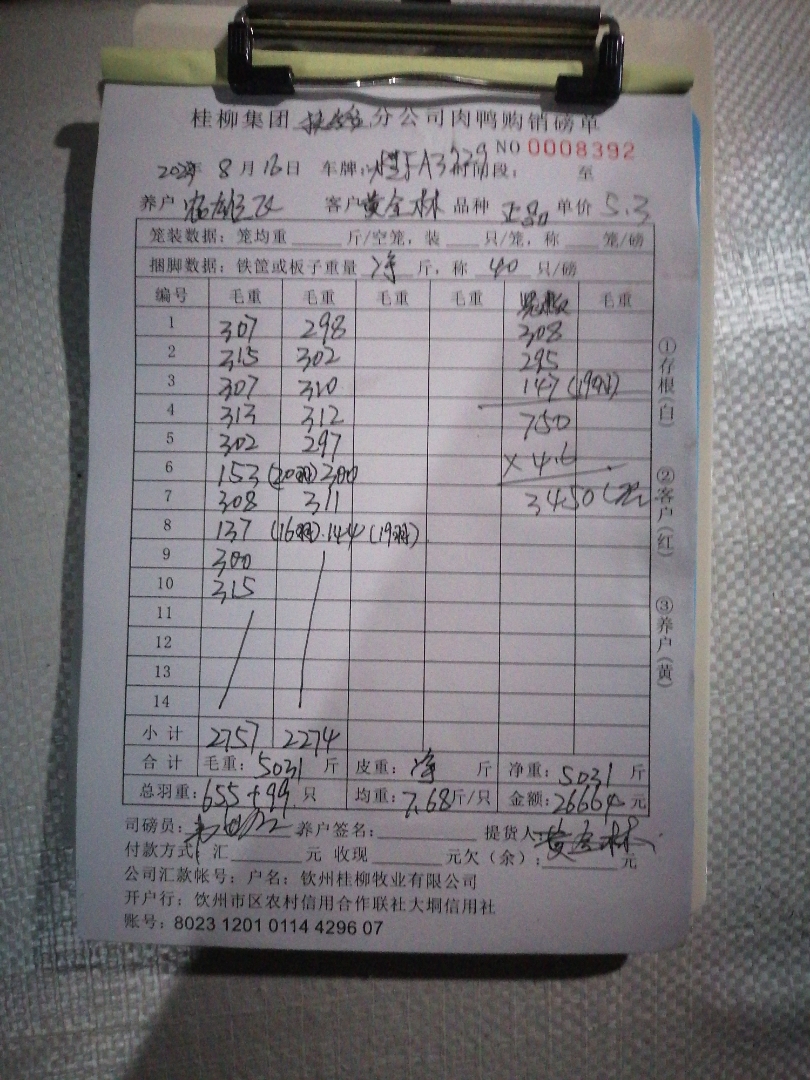 桂柳集团 分公司肉鸭购销磅单
NO 0008392
202 年 8 月 16 日 车牌: A3 时阶段: 至
养户 客户 黄金林 品种 单价 5.3
笼装数据: 笼均重 斤/空笼, 装 只/笼, 称 笼/磅
捆脚数据: 铁筐或板子重量 净 斤, 称 40 只/磅
编号 毛重 毛重 毛重 毛重 毛重
1 307 298 308
2 315 302 295
3 307 310 147 (19羽)
4 313 312 750
5 302 297 ×4.6
6 153 (20羽) 300
7 308 311 3450
8 137 (16羽) 144 (19羽)
9 300
10 315
11
12
13
14
小计 2757 2274
合计 毛重: 5031 斤 皮重: 净 斤 净重: 5031 斤
总羽重: 655+99 只 均重: 7.68 斤/只 金额: 26664 元
司磅员: 养户签名: 提货人: 黄金林
付款方式: 汇 元 收现 元欠(余): 元
公司汇款帐号: 户名: 钦州桂柳牧业有限公司
开户行: 钦州市区农村信用合作联社大垌信用社
账号: 8023 1201 0114 4296 07
①存根(白)
②客户(红)
③养户(黄)